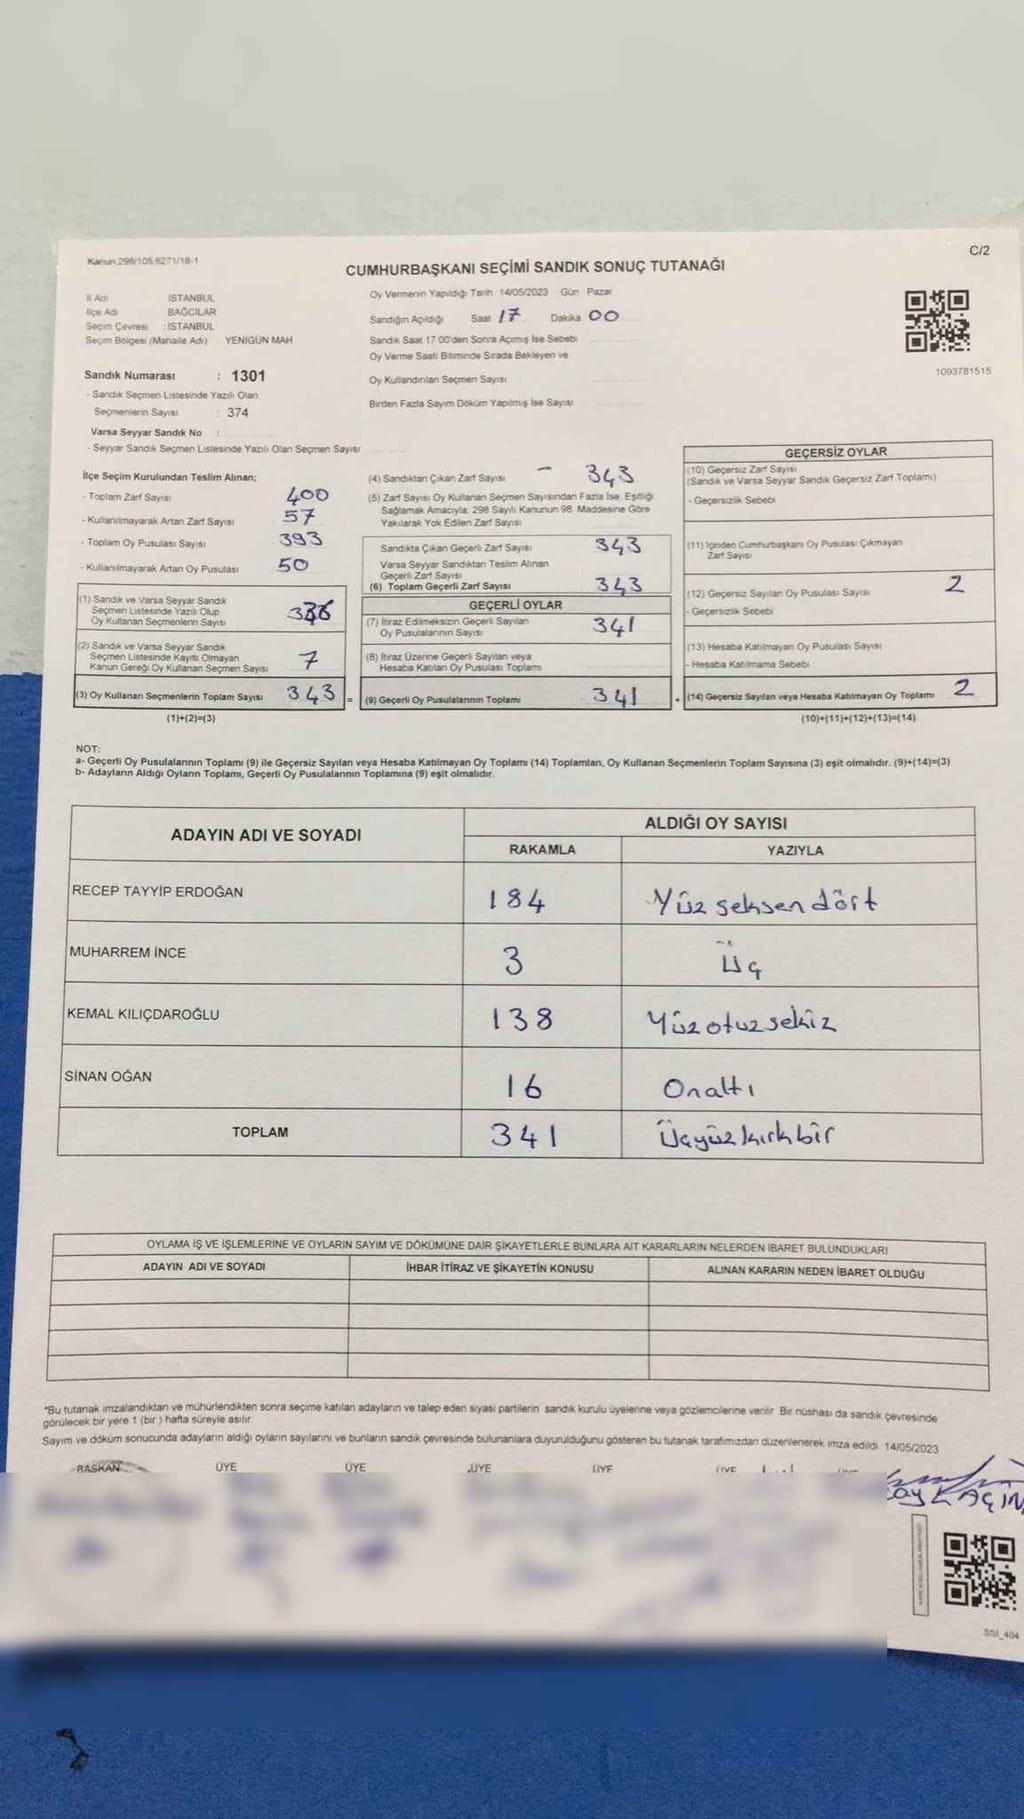 Kanun 298/105,6271/18-1
C/2
CUMHURBAŞKANI SEÇİMİ SANDIK SONUÇ TUTANAĞI
İl Adı İSTANBUL
İlçe Adı BAĞCILAR
Seçim Çevresi : İSTANBUL
Seçim Bölgesi (Mahalle Adı) YENİGÜN MAH
Sandık Numarası : 1301
- Sandık Seçmen Listesinde Yazılı Olan
Seçmenlerin Sayısı : 374
Varsa Seyyar Sandık No :
- Seyyar Sandık Seçmen Listesinde Yazılı Olan Seçmen Sayısı
Oy Vermenin Yapıldığı Tarih 14/05/2023 Gün Pazar
Sandığın Açıldığı Saat 17 Dakika 00
Sandık Saat 17 00'den Sonra Açımış İse Sebebi
Oy Verme Saati Bitiminde Sırada Bekleyen ve
Oy Kullandırılan Seçmen Sayısı
Birden Fazla Sayım Döküm Yapılmış İse Sayısı
1093781515
İlçe Seçim Kurulundan Teslim Alınan;
- Toplam Zarf Sayısı 400
- Kullanılmayarak Artan Zarf Sayısı 57
- Toplam Oy Pusulası Sayısı 393
- Kullanılmayarak Artan Oy Pusulası 50
(1) Sandık ve Varsa Seyyar Sandık
Seçmen Listesinde Yazılı Olup
Oy Kullanan Seçmenlerin Sayısı 336
(2) Sandık ve Varsa Seyyar Sandık
Seçmen Listesinde Kayıtlı Olmayan
Kanun Gereği Oy Kullanan Seçmen Sayısı 7
(3) Oy Kullanan Seçmenlerin Toplam Sayısı 343 =
(1)+(2)=(3)
(4) Sandıktan Çıkan Zarf Sayısı - 343
(5) Zarf Sayısı Oy Kullanan Seçmen Sayısından Fazla İse, Eşitliği
Sağlamak Amacıyla, 298 Sayılı Kanunun 98. Maddesine Göre
Yakılarak Yok Edilen Zarf Sayısı
Sandıkta Çıkan Geçerli Zarf Sayısı 343
Varsa Seyyar Sandıktan Teslim Alınan
Geçerli Zarf Sayısı
(6) Toplam Geçerli Zarf Sayısı 343
GEÇERLİ OYLAR
(7) İtiraz Edilmeksizin Geçerli Sayılan
Oy Pusulalarının Sayısı 341
(8) İtiraz Üzerine Geçerli Sayılan veya
Hesaba Katılan Oy Pusulası Toplamı
(9) Geçerli Oy Pusulalarının Toplamı 341 +
GEÇERSİZ OYLAR
(10) Geçersiz Zarf Sayısı
(Sandık ve Varsa Seyyar Sandık Geçersiz Zarf Toplamı)
- Geçersizlik Sebebi
(11) İçinden Cumhurbaşkanı Oy Pusulası Çıkmayan
Zarf Sayısı
(12) Geçersiz Sayılan Oy Pusulası Sayısı 2
- Geçersizlik Sebebi
(13) Hesaba Katılmayan Oy Pusulası Sayısı
- Hesaba Katılmama Sebebi
(14) Geçersiz Sayılan veya Hesaba Katılmayan Oy Toplamı 2
(10)+(11)+(12)+(13)=(14)
NOT:
a- Geçerli Oy Pusulalarının Toplamı (9) ile Geçersiz Sayılan veya Hesaba Katılmayan Oy Toplamı (14) Toplamları, Oy Kullanan Seçmenlerin Toplam Sayısına (3) eşit olmalıdır. (9)+(14)=(3)
b- Adayların Aldığı Oyların Toplamı, Geçerli Oy Pusulalarının Toplamına (9) eşit olmalıdır.
ADAYIN ADI VE SOYADI ALDIĞI OY SAYISI
RAKAMLA YAZIYLA
RECEP TAYYİP ERDOĞAN 184 Yüz seksen dört
MUHARREM İNCE 3 Üç
KEMAL KILIÇDAROĞLU 138 Yüz otuz sekiz
SİNAN OĞAN 16 Onaltı
TOPLAM 341 Üçyüz kırk bir
OYLAMA İŞ VE İŞLEMLERİNE VE OYLARIN SAYIM VE DÖKÜMÜNE DAİR ŞİKAYETLERLE BUNLARA AİT KARARLARIN NELERDEN İBARET BULUNDUKLARI
ADAYIN ADI VE SOYADI İHBAR İTİRAZ VE ŞİKAYETİN KONUSU ALINAN KARARIN NEDEN İBARET OLDUĞU
*Bu tutanak imzalandıktan ve mühürlendikten sonra seçime katılan adayların ve talep eden siyasi partilerin sandık kurulu üyelerine veya gözlemcilerine verilir Bir nüshası da sandık çevresinde
görülecek bir yere 1 (bir ) hafta süreyle asılır
Sayım ve döküm sonucunda adayların aldığı oyların sayılarını ve bunların sandık çevresinde bulunanlara duyurulduğunu gösteren bu tutanak tarafımızdan düzenlenerek imza edildi 14/05/2023
BAŞKAN ÜYE ÜYE ÜYE ÜYE ÜYE
SSI_404